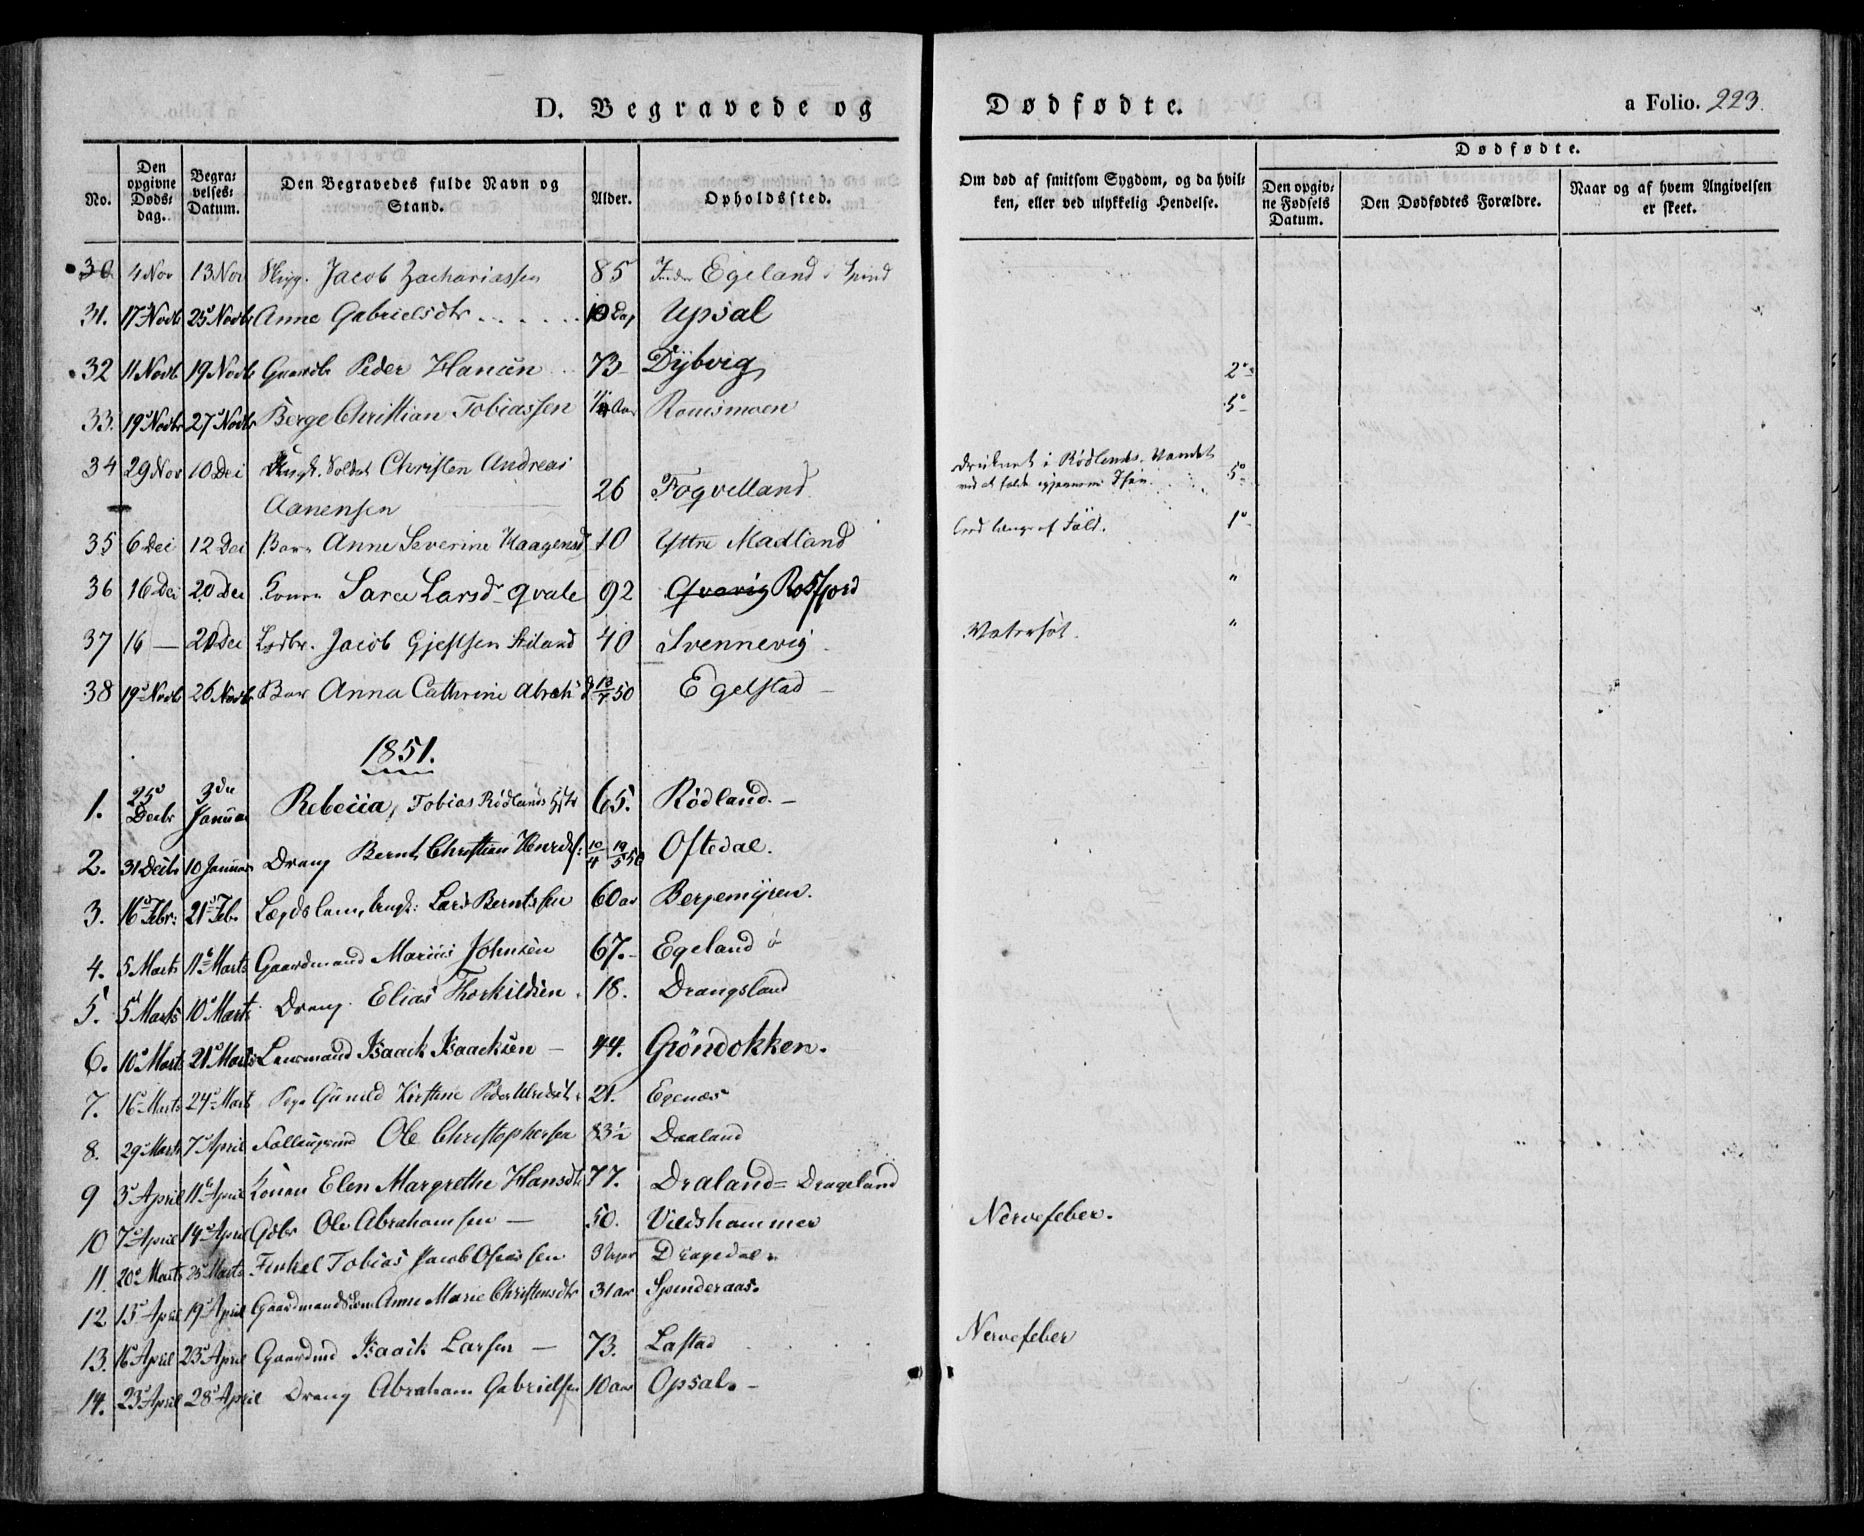 D. Begravede og Dødfødte. a Folio. 223.
No. Den opgivne Døds-dag. Begra-velses-Datum. Den Begravedes fulde Navn og Stand. Alder. Opholdssted. Om død af smitsom Sygdom, og da hvil-ken, eller ved ulykkelig Hendelse. Dødfødte. Den opgiv-ne Fødsels Datum. Den Dødfødtes Forældre. Naar og af hvem Angivelsen er skeet.
30 4 Nov 13 Nov Jacob Zachariassen 85 Egeland i Spind
31. 17 Novbr 25 Novbr Anne Gabrielsdtr 10 Dag Upsal
32 11 Novb 19 Novbr Gaardbr Peder Hansen 73 Dÿbvig 2°
33. 19 Novbr 27 Novbr Berge Christian Tobiassen Aar Romsmoen 5°
34 29 Nov 10 Dec Ungk. Soldat Christen Andreas
Aanensen 26 Fogvelland druknet i Rødlands Vandet 5°
ved at falde igjennem Isen.
35 6 Dec 12 Dec Barn Anne Severine Haagensd 10 Yttre Madland af Fald. 1°
36 16 Dec 20 Dec Konen Sara Larsd Qvale 92 Qvavig Rosfjord "
37 16 — 20 Dec Jacob Gjestsen 40 Svennevig Vatersot. "
38 19 Novb 26 Novb Barn Anna Cathrine Abrah d 13/7 50 Egelstad
1851.
1. 25 Decbr 3die Januar Rebecca, Tobias Rödlands 65. Rödland. —
2. 31 Decbr 10 Januar Dreng Bernt Christian 10/4 19/5 50 Oftedal.
3. 16 Febr: 21 Feb. Lægdslem, Ungk: Lars Berntssen 60 aar Bergemÿren.
4. 5 Marts 11 Marts Gaardmand Marius Johnsen 67. Egeland
5. 5 Marts 10 Marts Dreng Elias Thorkildsen 18. Drangsland
6. 10 Marts 21 Marts Lensmand Isaack Isaacksen — 44. Gröndokken.
7. 16 Marts 24 Marts Pige Gunild Kirstine 21. Egenæs
8. 29 Marts 7 April Ole Christophersen 83½ Daaland
9 3 April 11 April Konen Elen Margrethe Hansdtr 77. Draland= Drageland
10 7 April 14 April Gdbr Ole Abrahamsen — 50. Vieldshammer Nervefeber.
11. 20 Marts 25 Marts Tobias Jacob Oseassen 3 Uger Dragedal
12 13 April 19 April Gaardmands Anne Marie Christensdtr 31 aar Spinderaas.
13. 16 April 23 April Gaardmd Isaack Larsen — 73. Lastad Nervefeber
14. 23 April 28 April Dreng Abraham Gabrielsen 10 aar Opsal. —